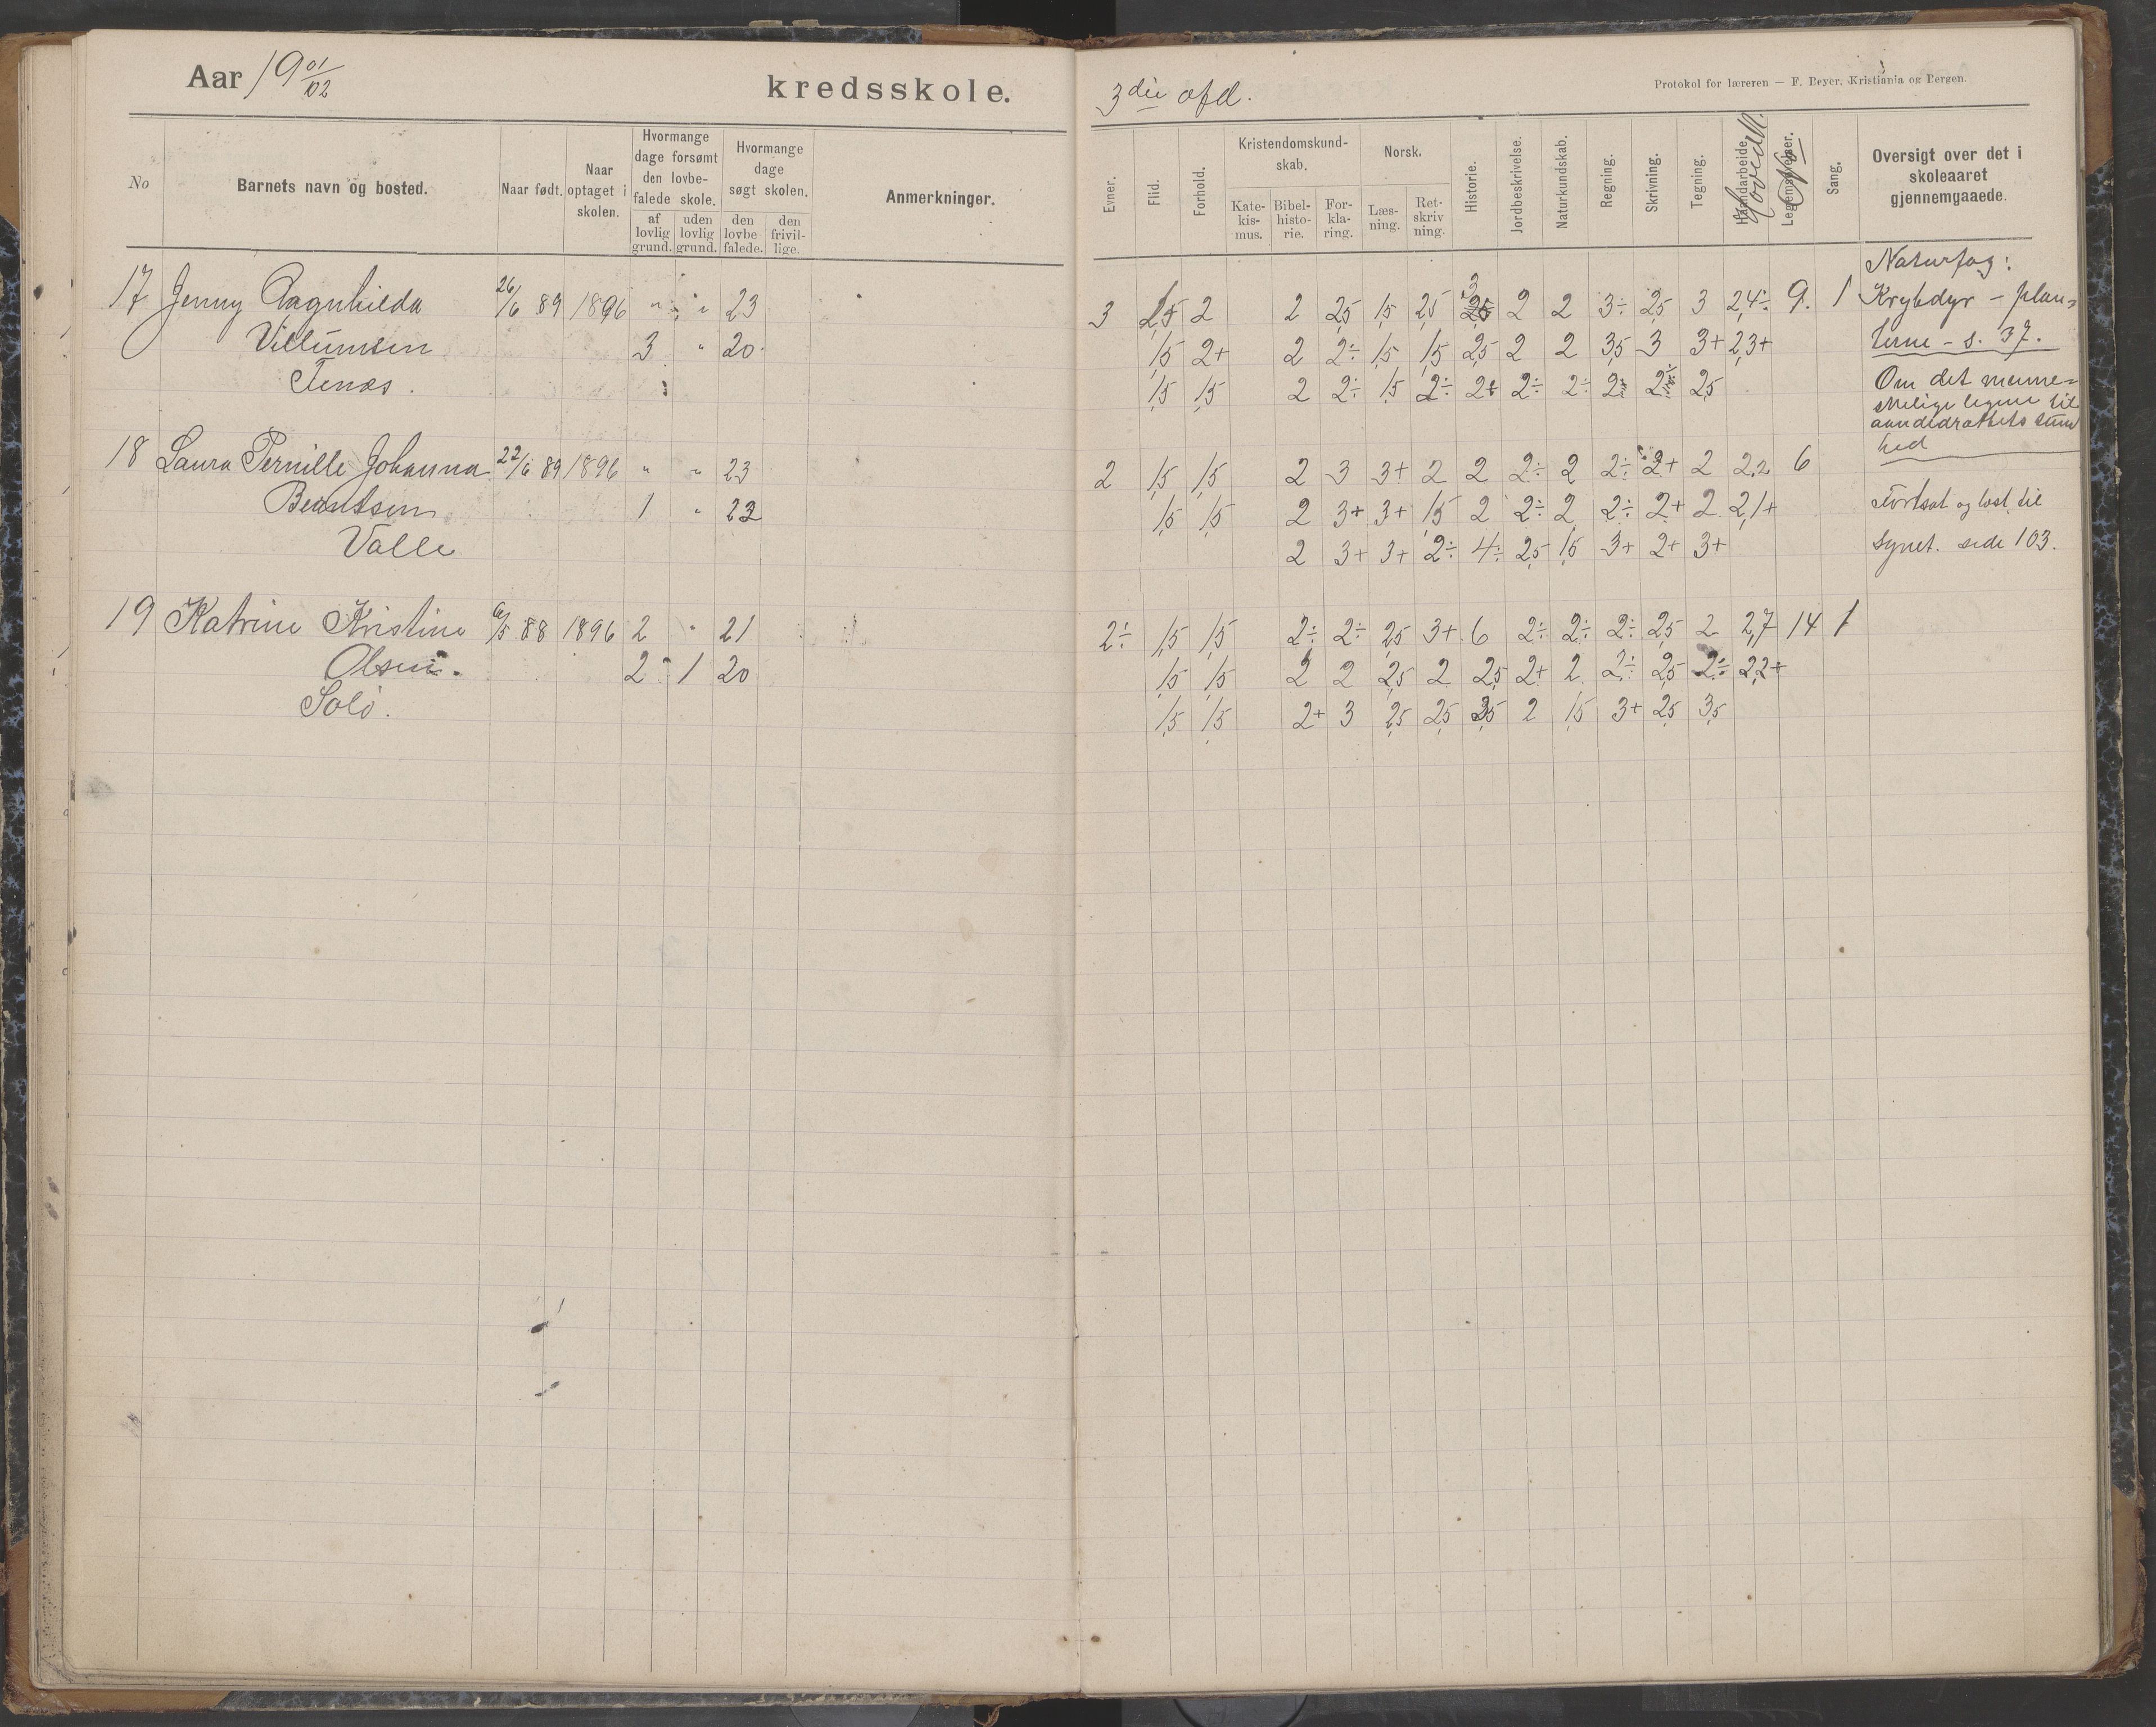 Aar 1901/02 kredsskole.
3die afd.
Protokol for læreren — F. Beyer, Kristiania og Bergen.
No
Barnets navn og bosted.
Naar født.
Naar optaget i skolen.
Hvormange dage forsømt den lovbefalede skole.
af lovlig grund.
uden lovlig grund.
Hvormange dage søgt skolen.
den lovbefalede.
den frivillige.
Anmerkninger.
Evner.
Flid.
Forhold.
Kristendomskundskab.
Katekismus.
Bibelhistorie.
Forklaring.
Norsk.
Læsning.
Retskrivning.
Historie.
Jordbeskrivelse.
Naturkundskab.
Regning.
Skrivning.
Tegning.
Haandarbeide.
Hovedk.
Legemsøvelser.
No
Sang.
Oversigt over det i skoleaaret gjennemgaaede.
17 Jenny Ragnhilda 26/6 89 1896 " " 23 3 1,5 2 2 2,5 1,5 2,5 3 2 2 3÷ 2,5 3 2,4÷ 9. 1
Villumsen 3 " 20 1,5 2+ 2 2÷ 1,5 1,5 2,5 2 2 3,5 3 3+ 2,3+
Tenæs. 1,5 1,5 2 2÷ 1,5 2÷ 2+ 2÷ 2÷ 2÷ 2÷ 2,5
18 Laura Pernille Johanna 22/6 89 1896 " " 23 2 1,5 1,5 2 3 3+ 2 2 2÷ 2 2÷ 2+ 2 2,2 6
Berntsen 1 " 22 1,5 1,5 2 3+ 3+ 1,5 2 2÷ 2 2÷ 2+ 2 2,1+
Valle 2 3+ 3+ 2÷ 4÷ 2,5 1,5 3+ 2+ 3+
19 Katrine Kristine 6/5 88 1896 2 " 21 2÷ 1,5 1,5 2÷ 2÷ 2,5 3+ 6 2÷ 2÷ 2÷ 2,5 2 2,7 14 1
Olsen. 2 1 20 1,5 1,5 2 2 2,5 2 2,5 2+ 2 2÷ 2,5 2÷ 2,2+
Solø. 1,5 1,5 2+ 3 2,5 2,5 3,5 2 1,5 3+ 2,5 3,5
Naturfag:
Krybdyr – plan=
terne – s. 37.
Om det menne=
skelige legeme til
aandedrættets sund
hed
Fortsat og læst til
synet. side 103.